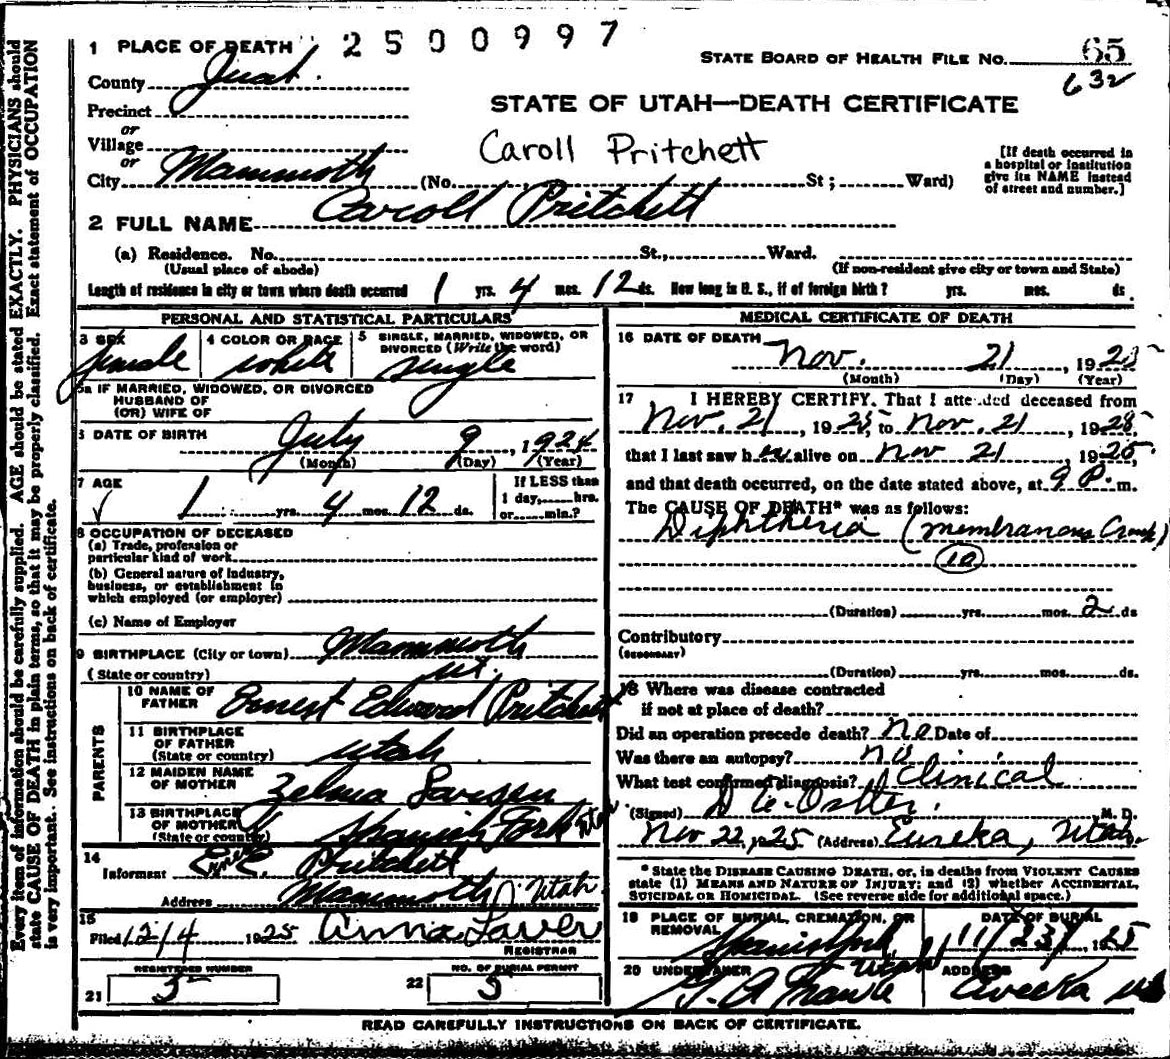 2500997
1 PLACE OF DEATH
STATE BOARD OF HEALTH FILE NO. 65
632
County Juab.
STATE OF UTAH—DEATH CERTIFICATE
Precinct
or
Village
Caroll Pritchett
or
City Mammoth (No. St; Ward)
[If death occurred in
a hospital or institution
give its NAME instead
of street and number.]
2 FULL NAME Caroll Pritchett
(a) Residence. No. St., Ward.
(Usual place of abode) (If non-resident give city or town and State)
Length of residence in city or town where death occurred 1 yrs. 4 mos. 12 ds. How long in U. S., if of foreign birth? yrs. mos. ds.
PERSONAL AND STATISTICAL PARTICULARS
3 SEX female
4 COLOR OR RACE white
5 SINGLE, MARRIED, WIDOWED, OR
DIVORCED (Write the word)
single
5a IF MARRIED, WIDOWED, OR DIVORCED
HUSBAND OF
(OR) WIFE OF
6 DATE OF BIRTH July 9, 1924
(Month) (Day) (Year)
7 AGE 1 yrs. 4 mos. 12 ds.
If LESS than
1 day, hrs.
or min.?
8 OCCUPATION OF DECEASED
(a) Trade, profession or
particular kind of work
(b) General nature of industry,
business, or establishment in
which employed (or employer)
(c) Name of Employer
9 BIRTHPLACE (City or town) Mammoth
(State or country) Ut.
PARENTS
10 NAME OF
FATHER Ernest Edward Pritchett
11 BIRTHPLACE
OF FATHER
(State or country) Utah
12 MAIDEN NAME
OF MOTHER Zelma Larsen
13 BIRTHPLACE
OF MOTHER
(State or country) Spanish Fork Utah
14
Informant Ernest E. Pritchett
Address Mammoth, Utah.
15
Filed 12/4 1925 Anna Laver
REGISTRAR
REGISTERED NUMBER
21 5
NO. OF BURIAL PERMIT
22 5
MEDICAL CERTIFICATE OF DEATH
16 DATE OF DEATH
Nov. 21, 1925
(Month) (Day) (Year)
17 I HEREBY CERTIFY, That I attended deceased from
Nov. 21, 1925, to Nov. 21, 1925,
that I last saw her alive on Nov 21, 1925,
and that death occurred, on the date stated above, at 9 P. m.
The CAUSE OF DEATH* was as follows:
Diphtheria (membranous Croup)
10
(Duration) yrs. mos. 2 ds
Contributory
(SECONDARY)
(Duration) yrs. mos. ds.
18 Where was disease contracted
if not at place of death?
Did an operation precede death? no Date of
Was there an autopsy? no
What test confirmed diagnosis? Clinical
(Signed) M. D.
Nov 22, 1925 (Address) Eureka, Utah.
* State the DISEASE CAUSING DEATH, or, in deaths from VIOLENT CAUSES
state (1) MEANS AND NATURE OF INJURY; and (2) whether ACCIDENTAL,
SUICIDAL OR HOMICIDAL. (See reverse side for additional space.)
19 PLACE OF BURIAL, CREMATION, OR
REMOVAL Spanish Fork, Utah
DATE OF BURIAL
11/23/1925
20 UNDERTAKER
ADDRESS
Eureka Ut
READ CAREFULLY INSTRUCTIONS ON BACK OF CERTIFICATE.
Every item of information should be carefully supplied. AGE should be stated EXACTLY. PHYSICIANS should
state CAUSE OF DEATH in plain terms, so that it may be properly classified. Exact statement of OCCUPATION
is very important. See instructions on back of certificate.